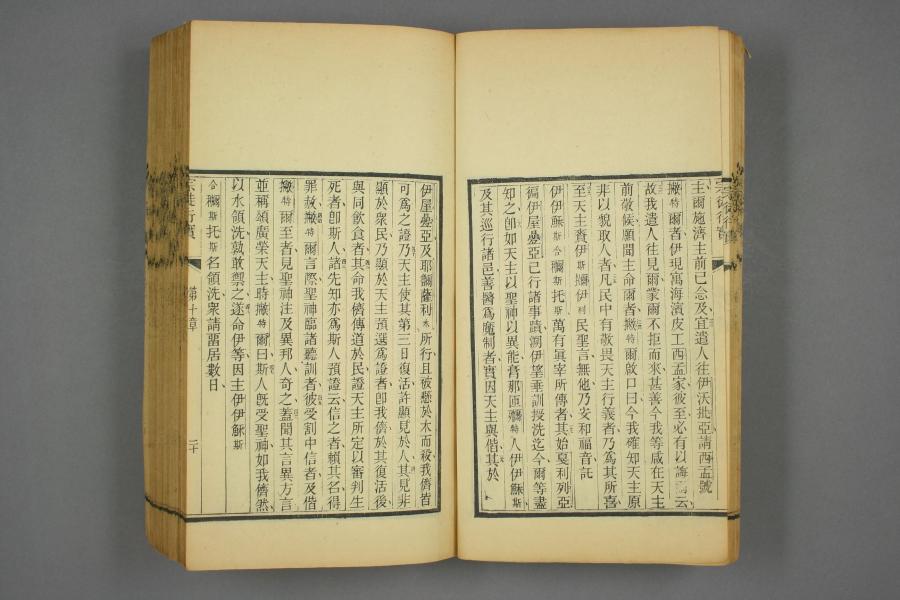 主爾施濟主前已念及宜遣人往伊沃批亞請西孟號
撇特爾者伊現寓海濱皮工西孟家彼至必有以誨爾云
故我遣人往見爾蒙爾不拒而來甚善今我等咸在天主
前敬候願聞主命爾者撇特爾啟口曰今我確知天主原
非以貌取人者凡民中有敬畏天主行義者乃為其所喜
至天主賚伊斯拉伊利民聖言無他乃安和福音託
伊伊穌斯合爾斯托斯萬有真宰所傳者其始戛利列亞
徧伊屋疊亞已行諸事蹟溯伊望垂訓授洗迄今爾等盡
知之卽如天主以聖神以異能膏那匝爾特人伊伊穌斯
及其巡行諸邑善醫為魔制者實因天主與偕其於
伊屋疊亞及耶爾薩利木所行且被懸於木而殺我儕皆
可為之證乃天主使其第三日復活許顯見於人其見非
顯於衆民乃顯於天主預選為證者卽我儕於其復活後
與同飲食者其命我儕傳道於民證天主所定以審判生
死者卽斯人諸先知亦為斯人預證云信之者賴其名得
罪赦撇特爾言際聖神臨諸聽訓者彼受割中信者及偕
撇特爾至者見聖神注及異邦人奇之蓋聞其言異方言
並稱頌廣榮天主時撇特爾曰斯人旣受聖神如我儕然
以水領洗孰敢禦之遂命伊等因主伊伊穌斯
合爾斯托斯名領洗衆請留居數日
宗徒行實
第十章
二十